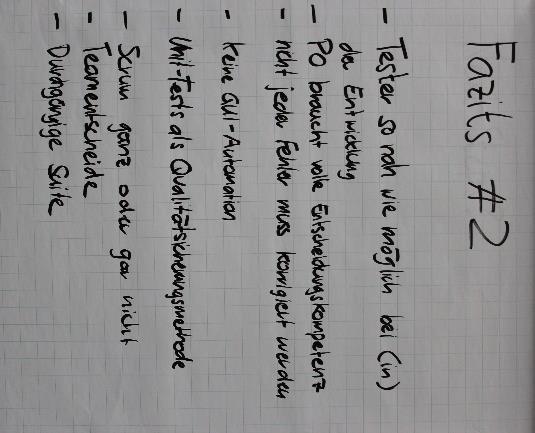 Fazits #2
- Tester so nah wie möglich bei (in)
der Entwicklung
- PO braucht volle Entscheidungskompetenz
- nicht jeder Fehler muss korrigiert werden
- keine GUI-Automation
- Unit-Tests als Qualitätsicherungsmethode
- Scrum ganz oder gar nicht
- Teamentscheide
- Durchgängige Suite